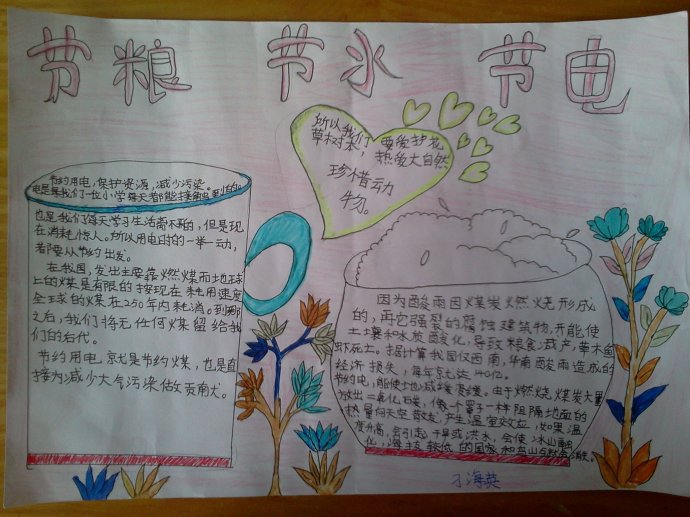 节粮 节水 节电
所以我们要爱护花
草树木，热爱大自然
珍惜动
物。
节约用电，保护资源，减少污染。
电是我们一位小学每天都能接触
也是我们每天学习生活离不开的，但是现
在消耗惊人。所以用电时的一举一动，
都要从节约出发。
在我国，发出主要靠燃煤而地球
上的煤是有限的按现在耗用速度
全球的煤在250年内耗消。到那
之后，我们将无任何煤留给我
们的后代。
节约用电，就是节约煤，也是直
接为减少大气污染做贡献。
因为酸雨因煤发燃烧形成
的，再它强裂的腐蚀建筑物，并能使
土壤和水质酸化，导致粮食减产，草木鱼
虾死亡。据计算我国仅西南，华南酸雨造成的
经济损失，每年就达140亿。
节约电，能使地减缓变缓。由于燃烧煤炭大量
放出二氧化碳，像一个罩子一样阻隔地面的
热量向天空散发，产生温室效应，如果温
度升高，会引起干旱或洪水，会使冰山融
化，海拔较低的国家和
刁海英